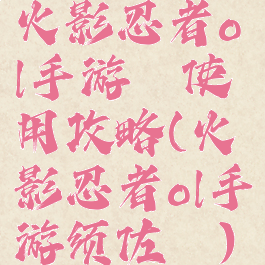 火影忍者o
l手游 使
用攻略(火
影忍者ol手
游须佐 )